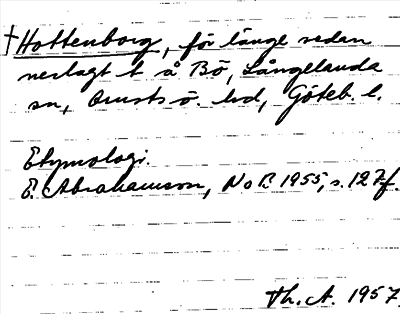 †Hottenborg, för länge sedan
nerlagt t å Bö, Långelanda
sn, Orusts ö. hd, Göteb. l.
Etymologi.
E. Abrahamson, NoB 1955, s. 127f.
Th. A. 1957.